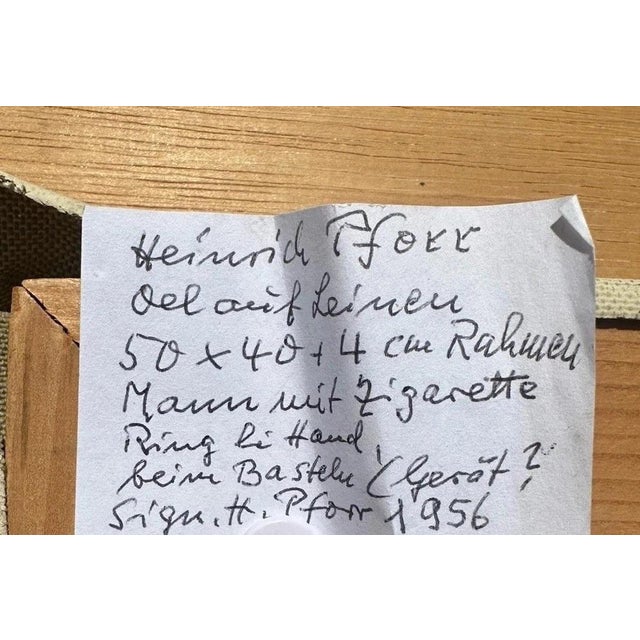 Heinrich Pforr
Oel auf Leinen
50 x 40 + 4 cm Rahmen
Mann mit Zigarette
Ring li Hand,
beim Basteln (Gerät?
Sign. H. Pforr 1956